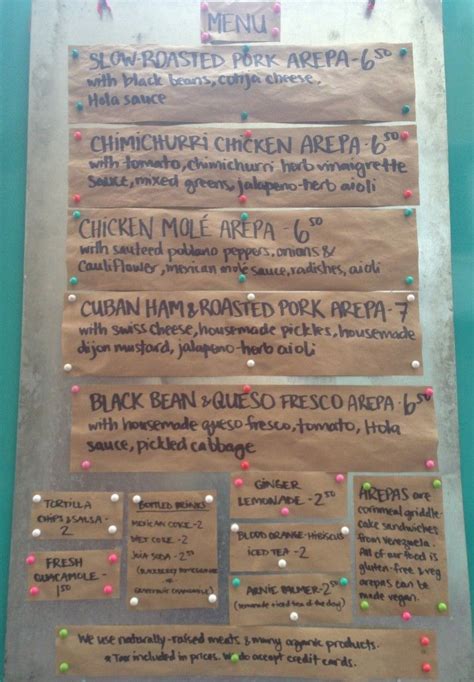 MENU
SLOW-ROASTED PORK AREPA - 6 50
with black beans, cotija cheese,
Hola sauce
CHIMICHURRI CHICKEN AREPA - 6 50
with tomato, chimichurri herb vinaigrette
sauce, mixed greens, jalapeno-herb aioli
CHICKEN MOLÉ AREPA - 6 50
with sauteed poblano peppers, onions &
cauliflower, mexican molé sauce, radishes, aioli
CUBAN HAM & ROASTED PORK AREPA - 7
with swiss cheese, housemade pickles, housemade
dijon mustard, jalapeno-herb aioli
BLACK BEAN & QUESO FRESCO AREPA - 6 50
with housemade queso fresco, tomato, Hola
sauce, pickled cabbage
TORTILLA
CHIPS & SALSA -
2
FRESH
GUACAMOLE -
1 50
BOTTLED DRINKS
MEXICAN COKE - 2
DIET COKE - 2
JOIA SODA - 2 50
(BLACKBERRY POMEGRANATE
or GRAPEFRUIT CHAMOMILE)
GINGER
LEMONADE - 2 50
BLOOD ORANGE-HIBISCUS
ICED TEA - 2
ARNIE PALMER - 2 50
(lemonade + iced tea of the day)
AREPAS are
cornmeal griddle-
cake sandwiches
from venezuela.
All of our food is
gluten-free & veg
arepas can be
made vegan.
We use naturally-raised meats & many organic products.
* Tax included in prices. We do accept credit cards.